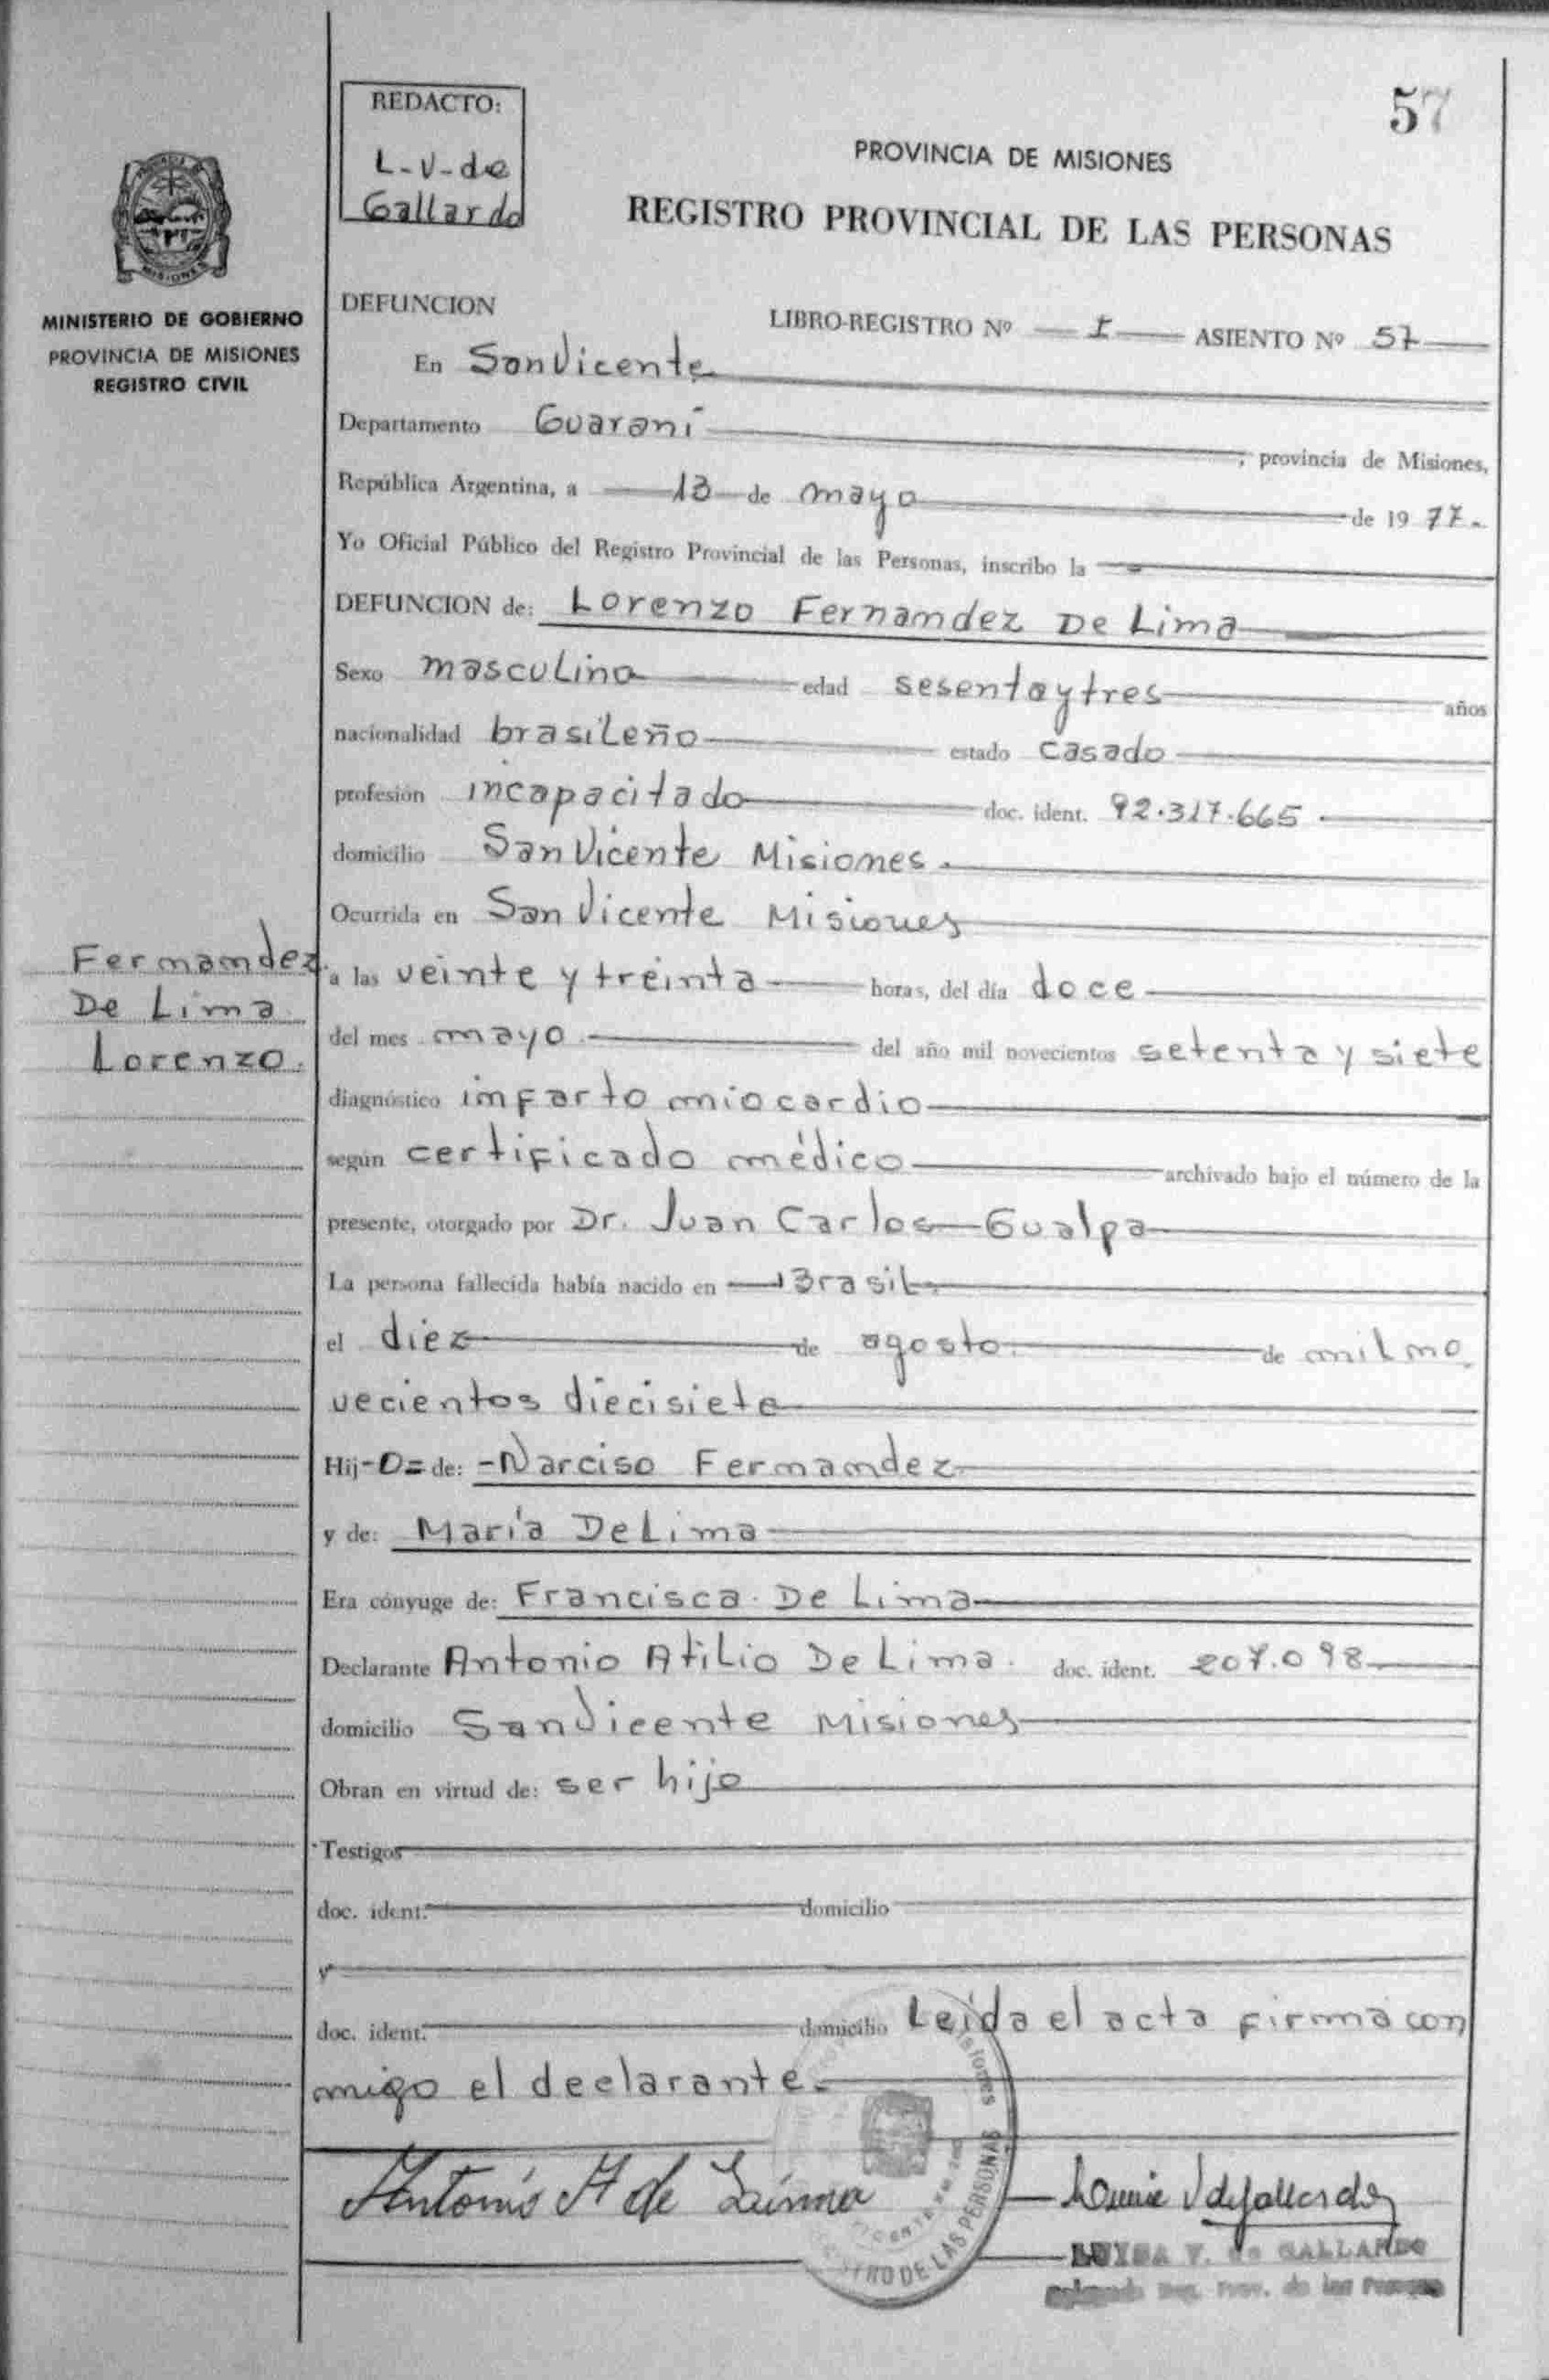 57
REDACTO:
L-V-de
Gallardo
PROVINCIA DE MISIONES
REGISTRO PROVINCIAL DE LAS PERSONAS
MISIONES
MINISTERIO DE GOBIERNO
PROVINCIA DE MISIONES
REGISTRO CIVIL
DEFUNCION
LIBRO-REGISTRO Nº I ASIENTO Nº 57
En San Vicente
Departamento Guaraní, provincia de Misiones,
República Argentina, a 13 de mayo de 19 77.
Yo Oficial Público del Registro Provincial de las Personas, inscribo la
DEFUNCION de: Lorenzo Fernandez De Lima
Sexo masculino edad sesenta y tres años
nacionalidad brasileño estado casado
profesión incapacitado doc. ident. 92.317.665.
domicilio San Vicente Misiones.
Ocurrida en San Vicente Misiones
Fernandez
De Lima
Lorenzo.
a las veinte y treinta horas, del día doce
del mes mayo del año mil novecientos setenta y siete
diagnóstico imfarto miocardio
según certificado médico archivado bajo el número de la
presente, otorgado por Dr. Juan Carlos Gualpa
La persona fallecida había nacido en Brasil.
el diez de agosto. de mil no
vecientos diecisiete
Hij-o= de: -Narciso Fernandez
y de: María De Lima
Era cónyuge de: Francisca De Lima
Declarante Antonio Atilio De Lima. doc. ident. 207.098
domicilio San Vicente Misiones
Obran en virtud de: ser hijo
Testigos
doc. ident. domicilio
y
doc. ident. domicilio Leída el acta firma con
migo el declarante.
Antonio A de Lima
Luisa V de Gallardo
LUISA V. de GALLARDO
Reg. Prov. de las Personas
REGISTRO DE LAS PERSONAS